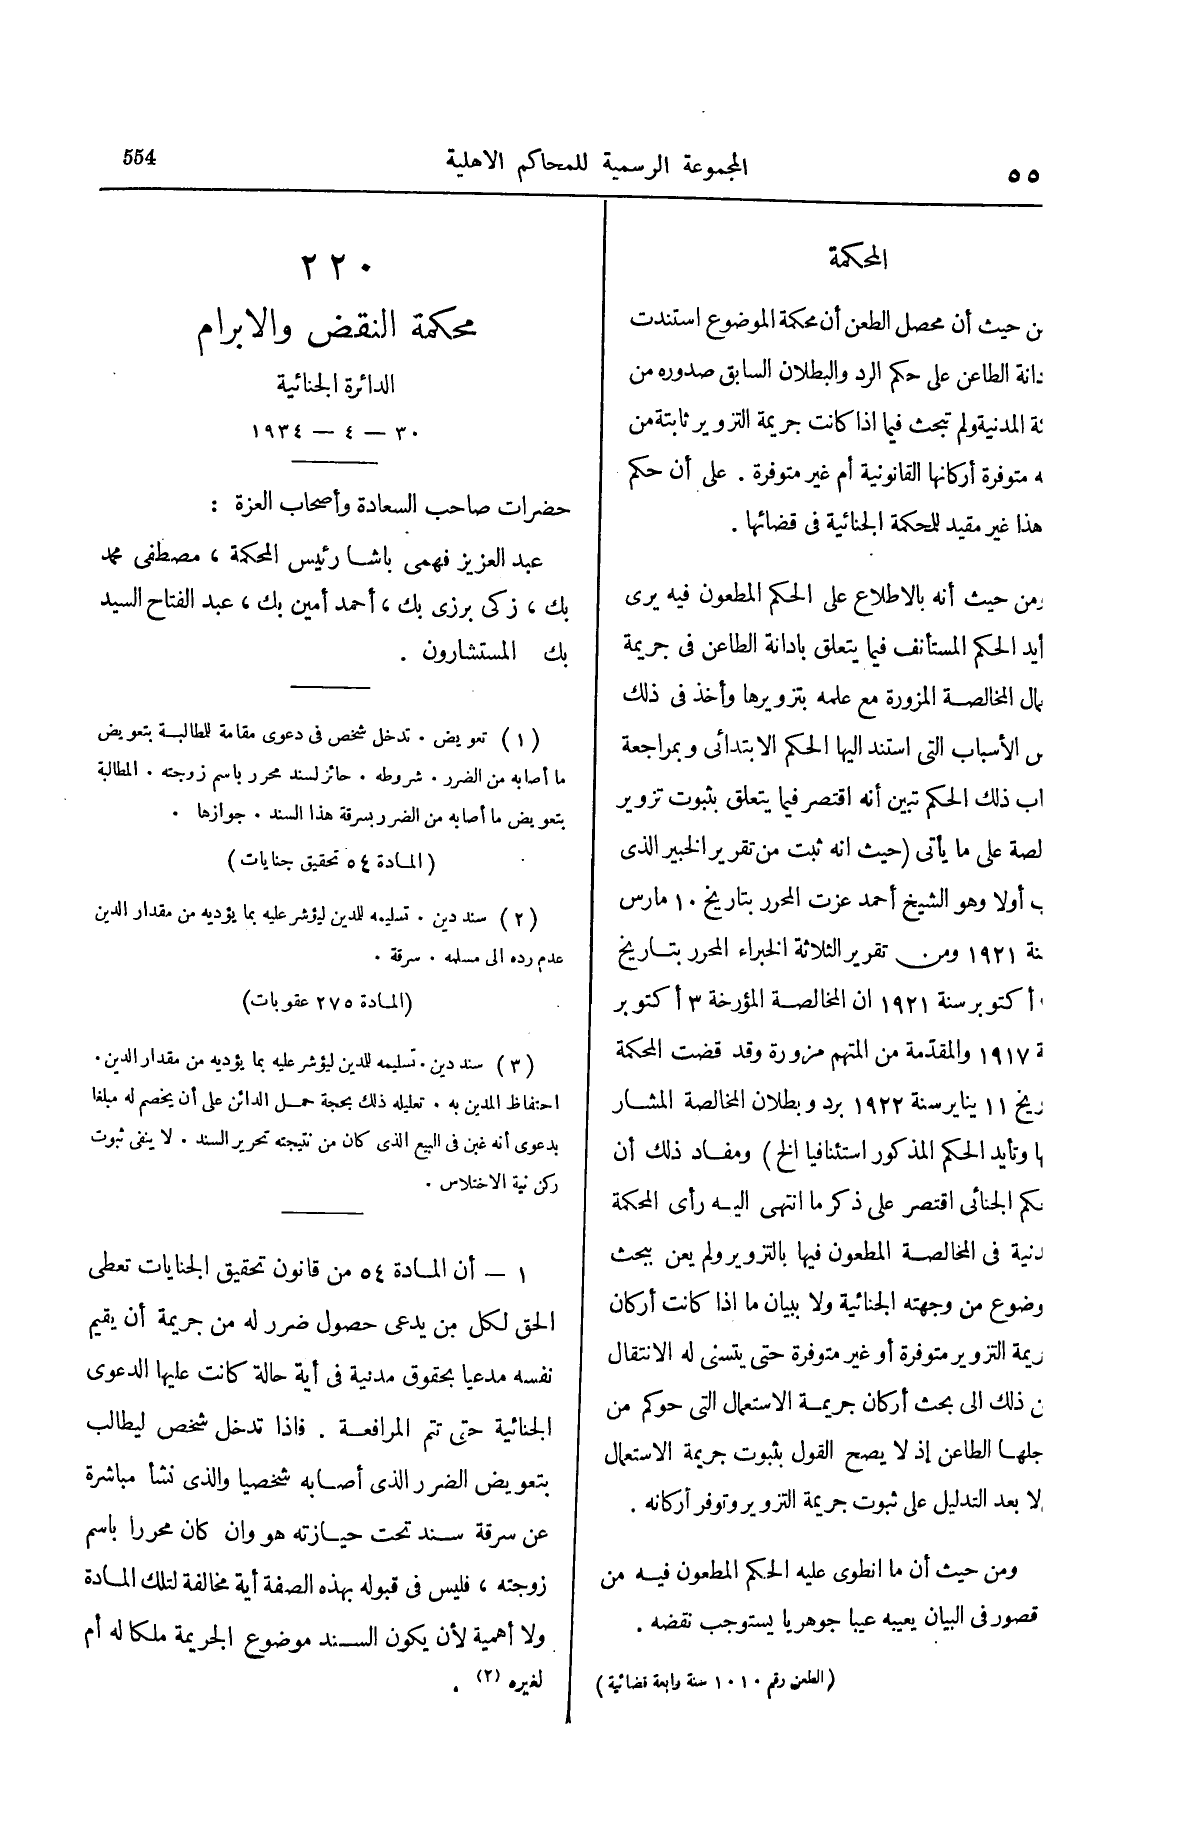 ٥٥
المجموعة الرسمية للمحاكم الاهلية
554
المحكمة
من حيث أن محصل الطعن أن محكمة الموضوع استندت
دانة الطاعن على حكم الرد والبطلان السابق صدوره من
ئة المدنية ولم تبحث فيما اذا كانت جريمة التزوير ثابتة من
ه متوفرة أركانها القانونية أم غير متوفرة . على أن حكم
هذا غير مقيد للمحكمة الجنائية فى قضائها .
ومن حيث أنه بالاطلاع على الحكم المطعون فيه يرى
أيد الحكم المستأنف فيما يتعلق بادانة الطاعن فى جريمة
مال المخالصة المزورة مع علمه بتزويرها وأخذ فى ذلك
س الأسباب التى استند اليها الحكم الابتدائى وبمراجعة
اب ذلك الحكم تبين أنه اقتصر فيما يتعلق بثبوت تزوير
لصة على ما يأتى (حيث انه ثبت من تقرير الخبير الذى
ب أولا وهو الشيخ أحمد عزت المحرر بتاريخ ١٠ مارس
نة ١٩٢١ ومن تقرير الثلاثة الخبراء المحرر بتاريخ
أكتوبر سنة ١٩٢١ ان المخالصة المؤرخة ٣ أكتوبر
ة ١٩١٧ والمقدّمة من المتهم مزورة وقد قضت المحكمة
ريخ ١١ يناير سنة ١٩٢٢ برد وبطلان المخالصة المشار
ها وتأيد الحكم المذكور استئنافيا الخ) ومفاد ذلك أن
كم الجنائى اقتصر على ذكر ما انتهى اليه رأى المحكمة
دنية فى المخالصة المطعون فيها بالتزوير ولم يعن ببحث
وضوع من وجهته الجنائية ولا ببيان ما اذا كانت أركان
ريمة التزوير متوفرة أو غير متوفرة حتى يتسنى له الانتقال
ن ذلك الى بحث أركان جريمة الاستعمال التى حوكم من
جلها الطاعن إذ لا يصح القول بثبوت جريمة الاستعمال
لا بعد التدليل على ثبوت جريمة التزوير وتوفر أركانه .
ومن حيث أن ما انطوى عليه الحكم المطعون فيه من
قصور فى البيان يعيبه عيبا جوهريا يستوجب نقضه .
(الطعن رقم ١٠١٠ سنة رابعة قضائية)
٢٢٠
محكمة النقض والابرام
الدائرة الجنائية
٣٠ – ٤ – ١٩٣٤
حضرات صاحب السعادة وأصحاب العزة :
عبد العزيز فهمى باشا رئيس المحكمة ، مصطفى محمد
بك ، زكى برزى بك ، أحمد أمين بك ، عبد الفتاح السيد
بك المستشارون .
(١) تعويض . تدخل شخص فى دعوى مقامة للطالبة بتعويض
ما أصابه من الضرر . شروطه . حائز لسند محرر باسم زوجته . المطالبة
بتعويض ما أصابه من الضرر بسرقة هذا السند . جوازها .
(المادة ٥٤ تحقيق جنايات)
(٢) سند دين . تسليمه للدين ليؤشر عليه بما يؤديه من مقدار الدين
عدم رده الى مسلمه . سرقة .
(المادة ٢٧٥ عقوبات)
(٣) سند دين . تسليمه للدين ليؤشر عليه بما يؤديه من مقدار الدين .
احتفاظ المدين به . تعليله ذلك بحجة حمل الدائن على أن يخصم له مبلغا
بدعوى أنه غبن فى البيع الذى كان من نتيجته تحرير السند . لا ينفى ثبوت
ركن نية الاختلاس .
١ – أن المادة ٥٤ من قانون تحقيق الجنايات تعطى
الحق لكل من يدعى حصول ضرر له من جريمة أن يقيم
نفسه مدعيا بحقوق مدنية فى أية حالة كانت عليها الدعوى
الجنائية حتى تتم المرافعة . فاذا تدخل شخص ليطالب
بتعويض الضرر الذى أصابه شخصيا والذى نشأ مباشرة
عن سرقة سند تحت حيازته هو وان كان محررا باسم
زوجته ، فليس فى قبوله بهذه الصفة أية مخالفة لتلك المادة
ولا أهمية لأن يكون السند موضوع الجريمة ملكا له أم
لغيره (٢) .